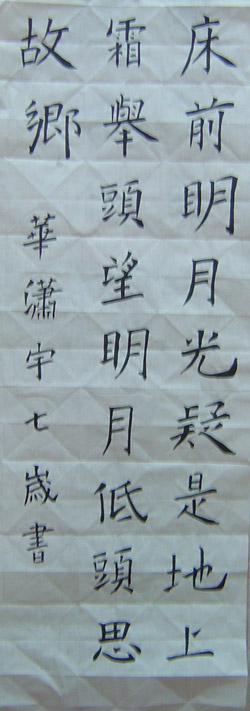 床前明月光疑是地上
霜舉頭望明月低頭思
故鄉
華瀟宇七歲書